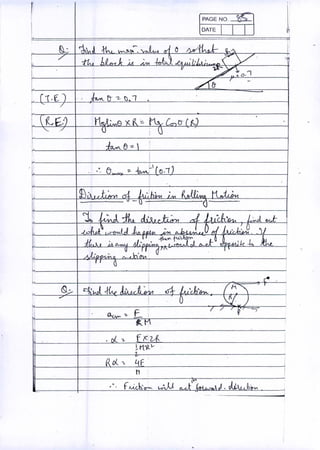 PAGE NO 85
DATE
Q: Find the max. value of θ so that
the block is in total equilibrium.
R
2R
μ = 0.7
θ
(T.E) tan θ = 0.7
(R.E) Mg sinθ × R = Mg Cosθ (R)
tan θ = 1
∴ θmax = tan⁻¹ (0.7)
Direction of friction in Rolling Motion
To find the direction of friction, find out
what would happen in absence of friction. If
there is any slipping then friction would act opposite to the
slipping action.
Q: Find the direction of friction.
M
R
F
acm = F
M
α = F×2R
½MR²
Rα = 4F
M
∴ Friction will act in forward direction.